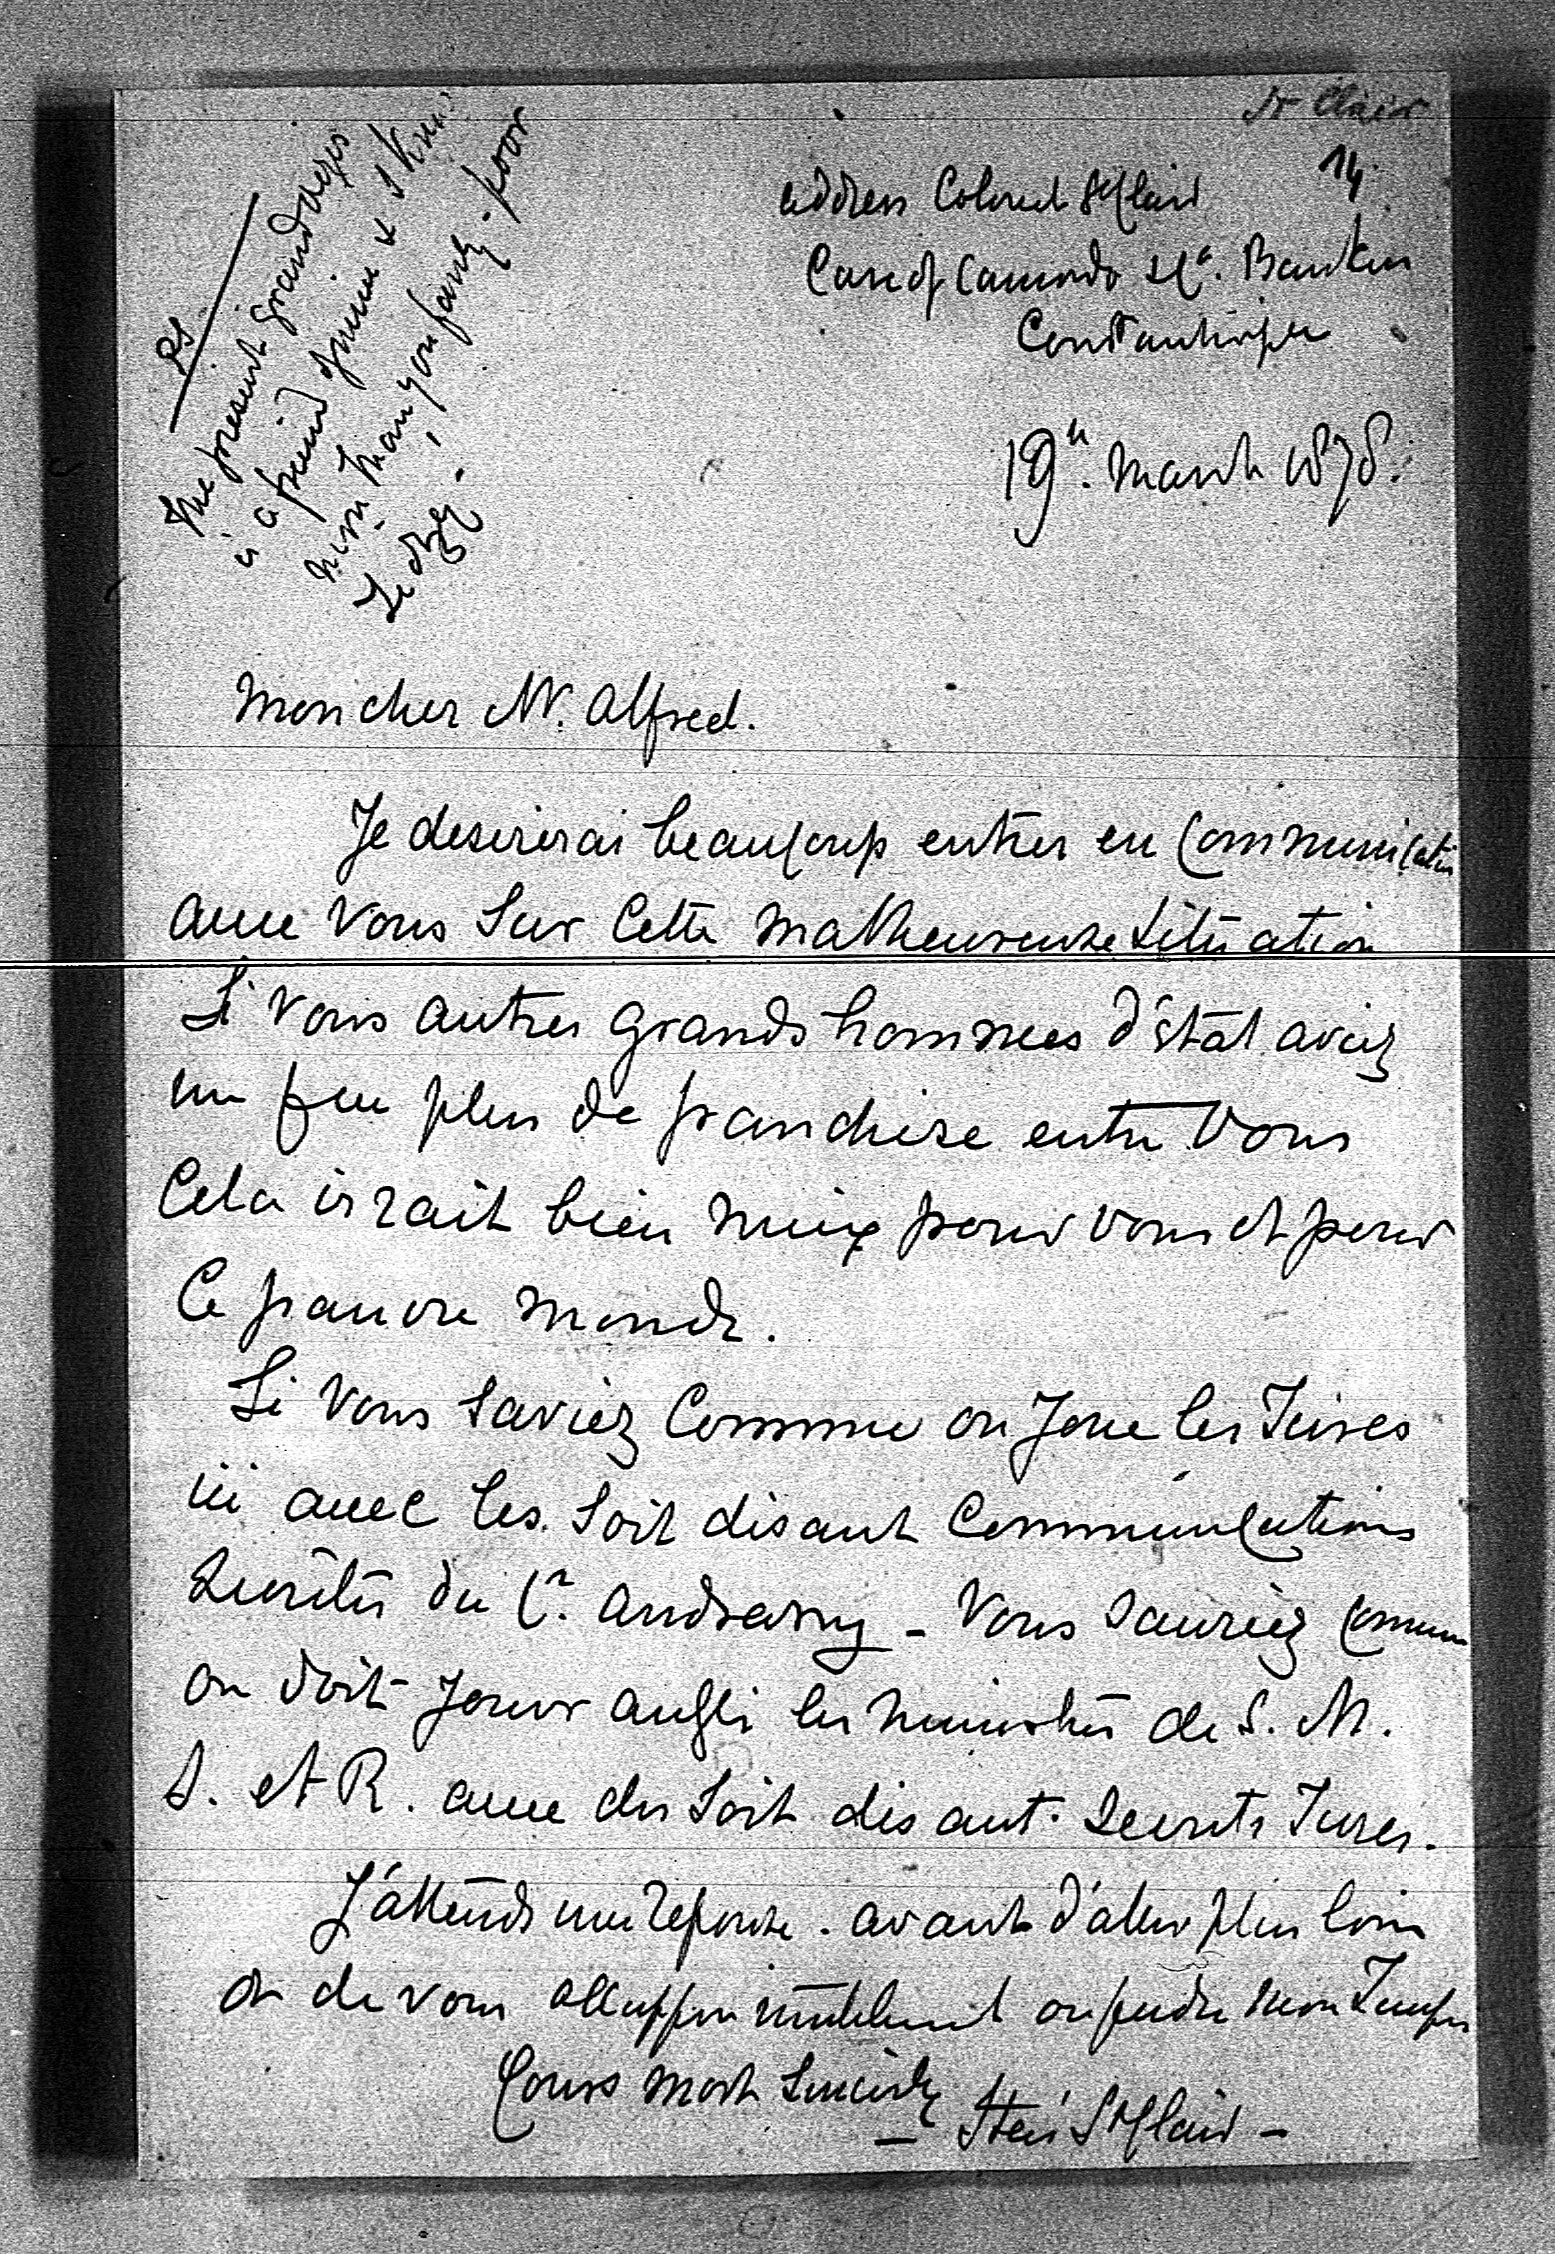 St Clair
14.
address Colonel St Clair
Care of Camondo & Co. Banker
Constantinople
19th. March 1878.
PS.
The present grand vezir
is a friend of mine & I know
him
. poor
Mon cher Mr. Alfred.
Je desirerai beaucoup entrer en Communication
avec Vous Sur Cette malheureuse Situation
Si Vous autres grands hommes d'état aviez
un peu plus de franchise entre Vous
Cela irrait bien mieux pour vous et pour
Ce pauvre monde.
Si Vous Saviez Comme on Joue les Turcs
ici avec les Soit disant Communications
Secrètes du Cte. Andrassy - Vous Sauriez comme
on doit Jouer aussi les ministres de S. M.
I. et R. avec des Soit disant Secrets Turcs.
J'attends une reponse. avant d'aller plus loin
ou de vous occupper inutilement ou perdre mon Temps
Yours most Sincerely
- St Clair -